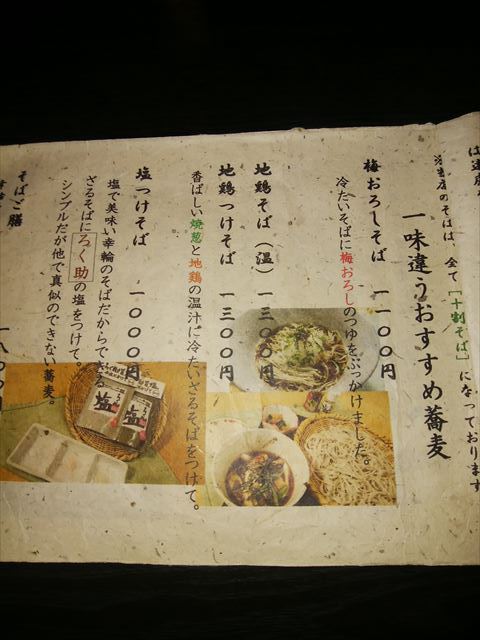 ※当店のそばは、全て「十割そば」になっております
一味違うおすすめ蕎麦
梅おろしそば 一一〇〇円
冷たいそばに梅おろしのつゆをぶっかけました。
地鶏そば（温） 一三〇〇円
地鶏つけそば 一三〇〇円
香ばしい焼葱と地鶏の温汁に冷たいざるそばをつけて。
塩つけそば 一〇〇〇円
塩で美味い幸輪のそばだからできる
ざるそばにろく助の塩をつけて。
シンプルだが他で真似のできない蕎麦。
そばご膳
塩
塩